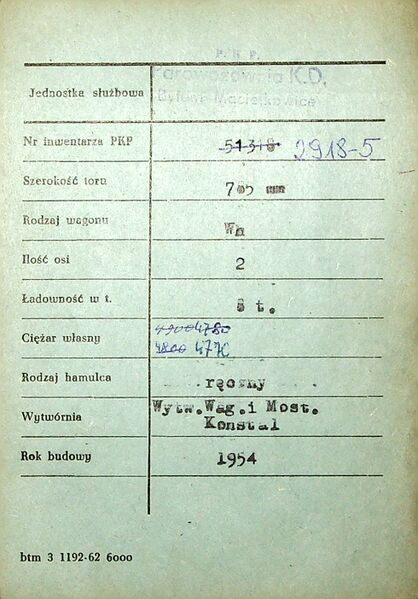 P. K. P.
Parowozownia K.D.
Bytom Maciejkowice
Jednostka służbowa
Nr inwentarza PKP 51318 2918-5
Szerokość toru 785 mm
Rodzaj wagonu
Ilość osi 2
Ładowność w t. 8 t.
4900 4780
Ciężar własny
4800
Rodzaj hamulca ręczny
Wytw. Wag. i Most.
Wytwórnia Konstal
Rok budowy 1954
btm 3 1192-62 6000